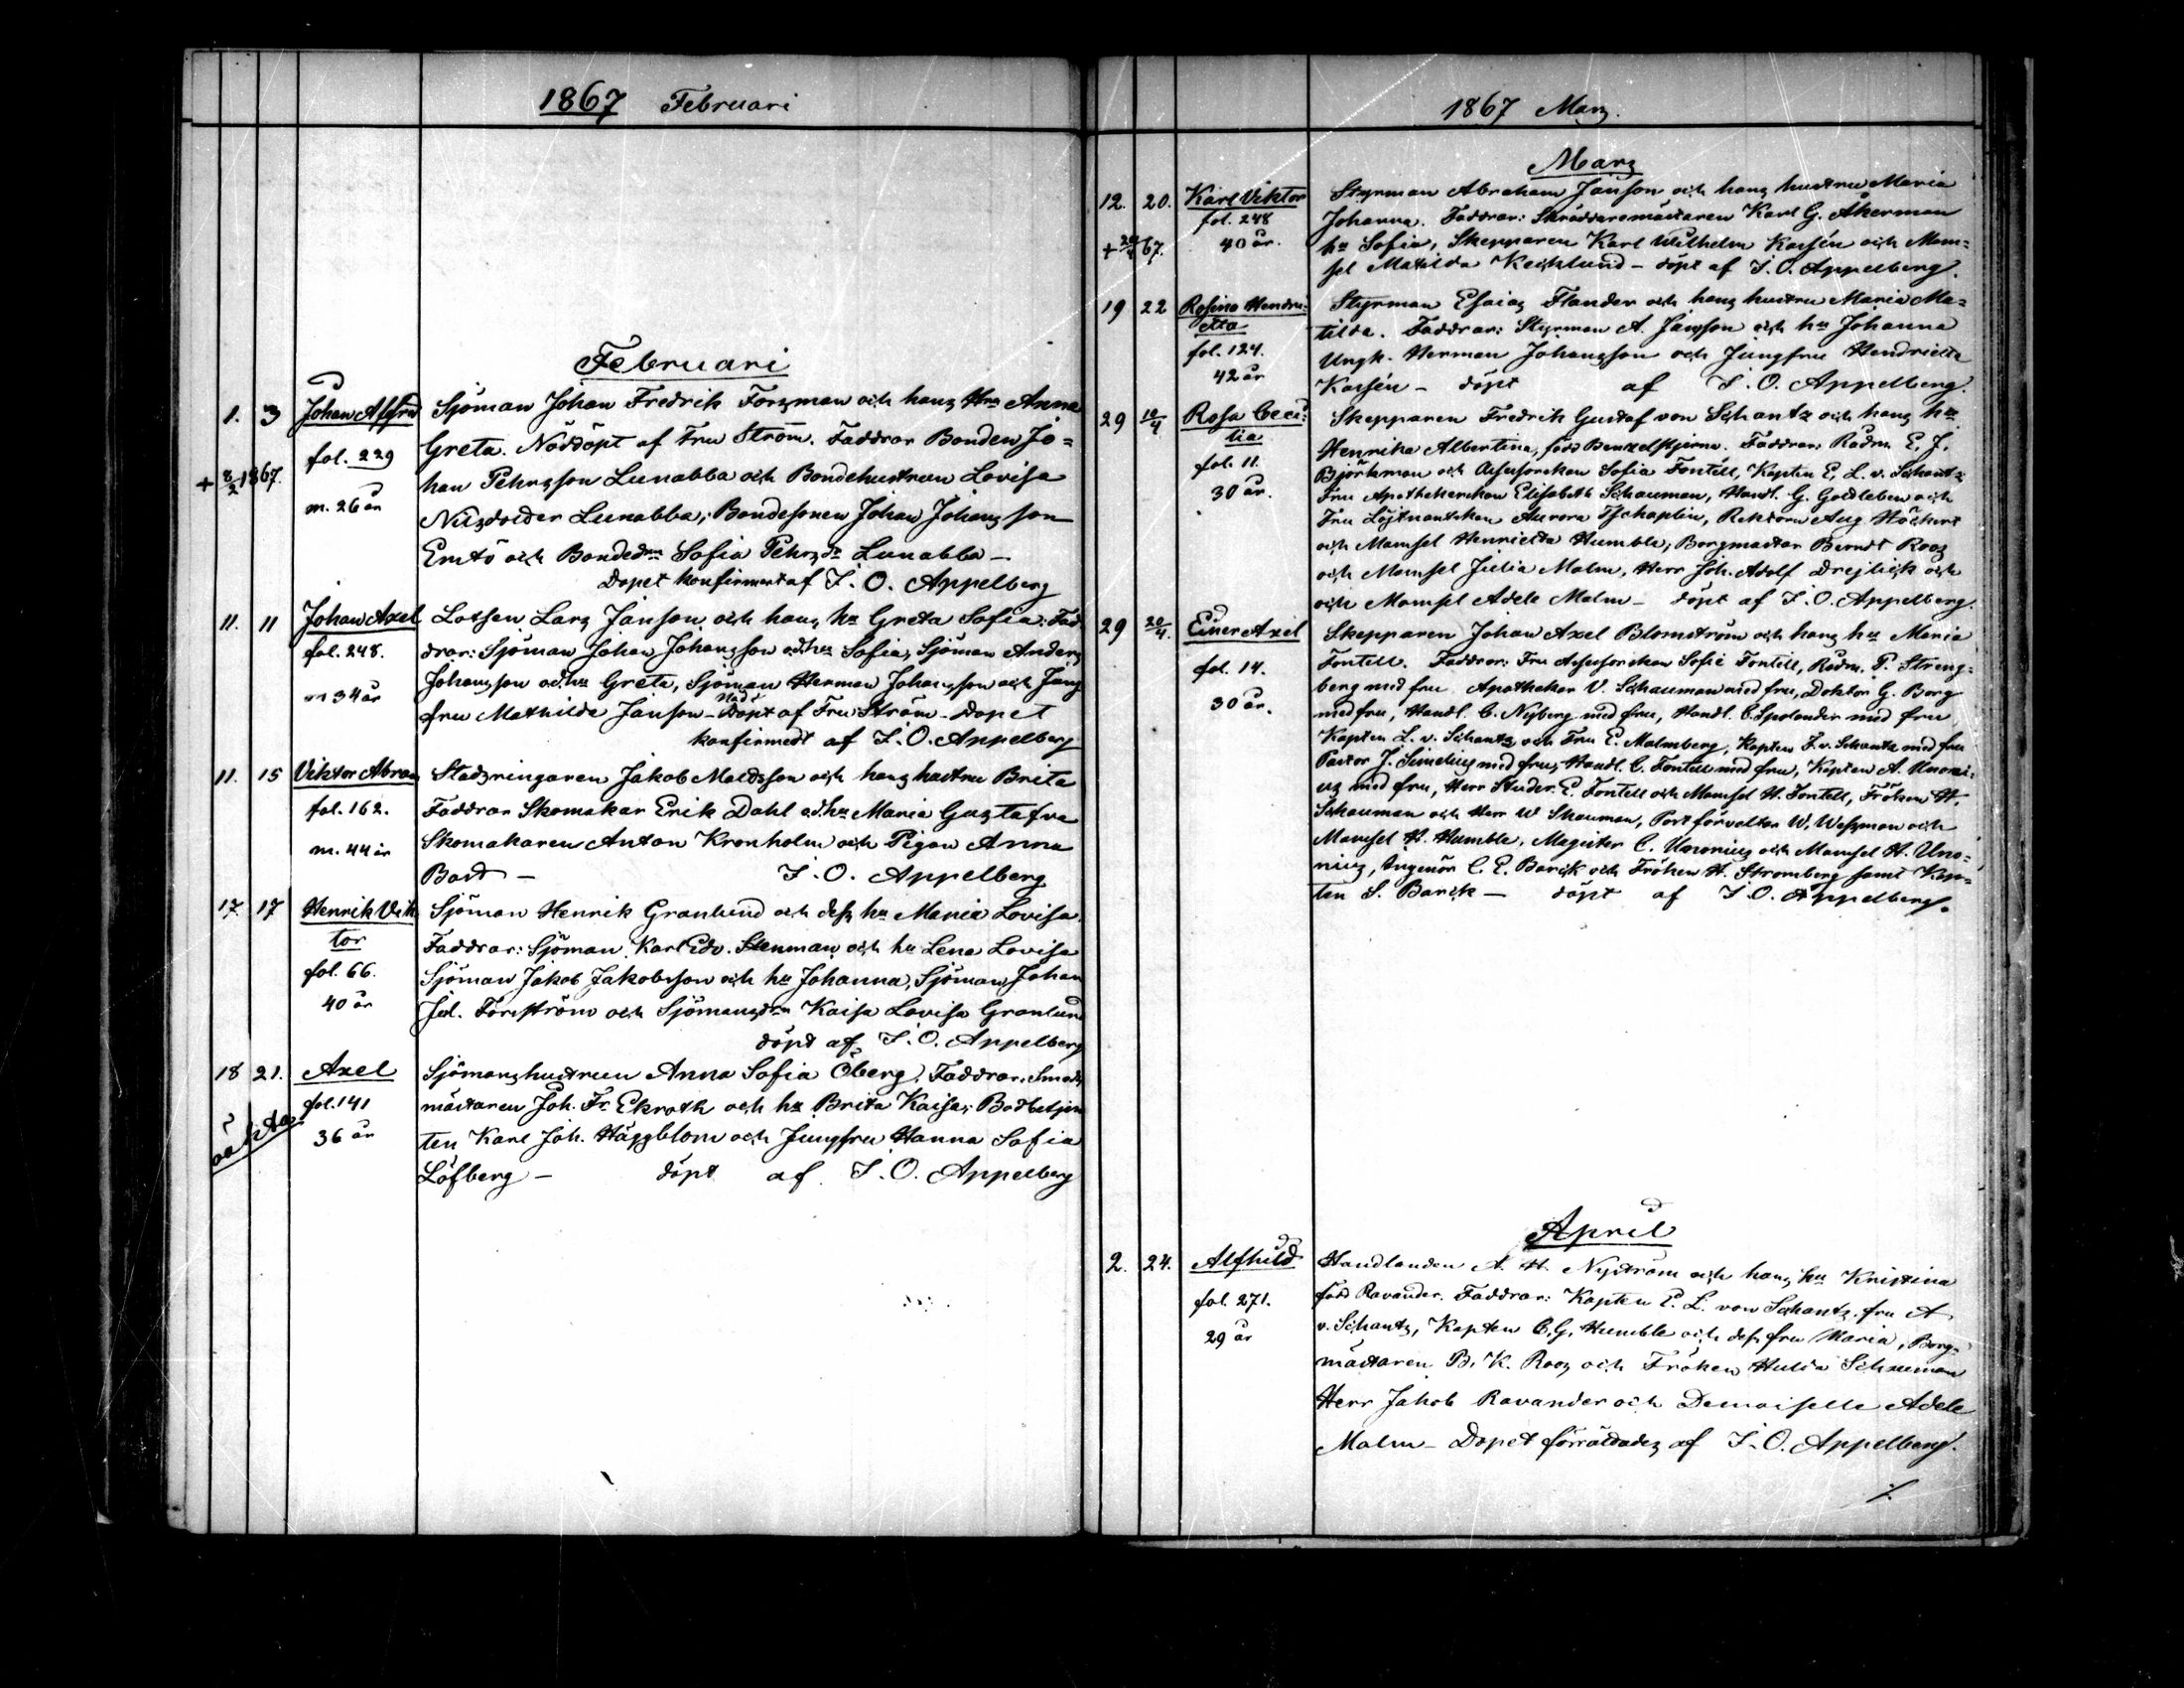 1867 Februari
Februari
1. 3 Johan Alfred Sjöman Johan Fredrik Forsman och hans Hru Anna
fol. 229 Greta. Nöddöpt af Fru Ström. Faddrar Bonden Jo=
+ 8/2 1867. han Pehrsson Lunabba och Bondehustrun Lovisa
m. 26 år Nilsdotter Lunabba, Bondesonen Johan Johansson
Emtö och Bondedrn Sofia Pehrsdr Lunabba —
Dopet konfirmerat af I. O. Appelberg
11. 11 Johan Axel Lotsen Lars Janson och hans hu Greta Sofia. Fad
fol. 248. drar: Sjöman Johan Johansson o.d.hu Sofia, Sjöman Anders
m 34 år Johansson o.d.hu Greta, Sjöman Herman Johansson och Jung
fru Mathilda Janson — Nöd Döpt af Fru Ström — Dopet
konfirmedt af I. O. Appelberg
11. 15 Viktor Abram Stadsringaren Jakob Matdsson och hans hustru Brita
fol. 162. Faddrar Skomakar Erik Dahl o.d.hu Maria Gustafva
m. 44 år Skomakaren Anton Kronholm och Pigan Anna
Bard — I. O. Appelberg
17. 17 Henrik Vik Sjöman Henrik Granlund och dess hu Maria Lovisa.
tor Faddrar: Sjöman Karl Edv. Stenman och hu Lena Lovisa
fol. 66. Sjöman Jakob Jakobsson och hu Johanna, Sjöman Johan
40 år Fed. Forsström och Sjömansdrn Kaisa Lovisa Granlund
döpt af I. O. Appelberg
18 21. Axel Sjömanshustrun Anna Sofia Öberg. Faddrar: Smeds
fol. 141 mästaren Joh. Fr. Ekroth och hu Brita Kaisa, Bodbetjen
oäkta 36 år ten Karl Joh. Häggblom och Jungfru Hanna Sofia
Löfberg — döpt af I. O. Appelberg
1867 Mars.
Mars
12. 20. Karl Viktor Styrman Abraham Janson och hans hustru Maria
fol. 248 Johanna. Faddrar: Skräddaremästaren Karl G. Åkerman
+ 67. 40 år. hu Sofia, Skepparen Karl Wilhelm Kassén och Mam=
sel Matilda Kecklund — döpt af I. O. Appelberg.
19 22 Rosina Hendri= Styrman Esaias Flander och hans hustru Maria Ma=
etta tilda. Faddrar: Styrman A. Jansson och hu Johanna
fol. 124. Ungk. Herman Johansson och Jungfru Hendrietta
42 år Kassén — döpt af I. O. Appelberg.
29 10/4 Rosa Ceci= Skepparen Fredrik Gustaf von Schantz och hans hu
lia Henrika Albertina, född Benzelstjerna. Faddrar: Rådm. E. J.
fol. 11. Björkman och Assessorskan Sofia Fontéll, Kapten E. L. v. Schantz
30 år. Fru Apothekerskan Elisabeth Schauman, Handl. G. Godtleben och
Fru Löjtnantskan Aurora Tschaplin, Rektorn Aug Höckert
och Mamsel Henrietta Humble, Borgmästar Berndt Roos
och Mamsel Julia Malm, Herr Joh. Adolf Drejlick och
och Mamsel Adele Malm — döpt af I. O. Appelberg.
29 20/4. Einer Axel Skepparen Johan Axel Blomström och hans hu Maria
fol. 14. Fontell. Faddrar: Fru Assessorskan Sofie Fontéll, Rådm. P. Streng=
30 år. berg med fru Apothekar V. Schauman med fru, Doktor G. Borg
med fru, Handl. C. Nyberg med fru, Handl. C. Spolander med fru
Kapten L. v. Schantz och Fru E. Malmberg, Kapten F. v. Schantz med fru
Pastor J. Simelius med fru, Handl. C. Fontéll med fru, Kapten A. Unoni=
us med fru, Herr Studer. E. Fontell och Mamsel H. Fontell, Fröken H.
Schauman och Herr W Shauman, Postförvaltar W. Wessman och
Mamsel H. Humble, Magister C. Unonius och Mamsel H. Uno=
nius, Ingeniör C. E. Barck och Fröken H. Stromberg samt Kap=
ten S. Barck — döpt af I. O. Appelberg.
April
2. 24. Alfhild Handlanden A. H. Nyström och hans hu Kristina
fol. 271. född Ravander. Faddrar: Kapten E. L. von Schantz, fru A
29 år v. Schantz, Kapten C. G. Humble och dess fru Maria, Borg=
mästaren B. K. Roos och Fröken Hulda Schauman
Herr Jakob Ravander och Demoiselle Adele
Malm — Dopet förrättades af I. O. Appelberg.